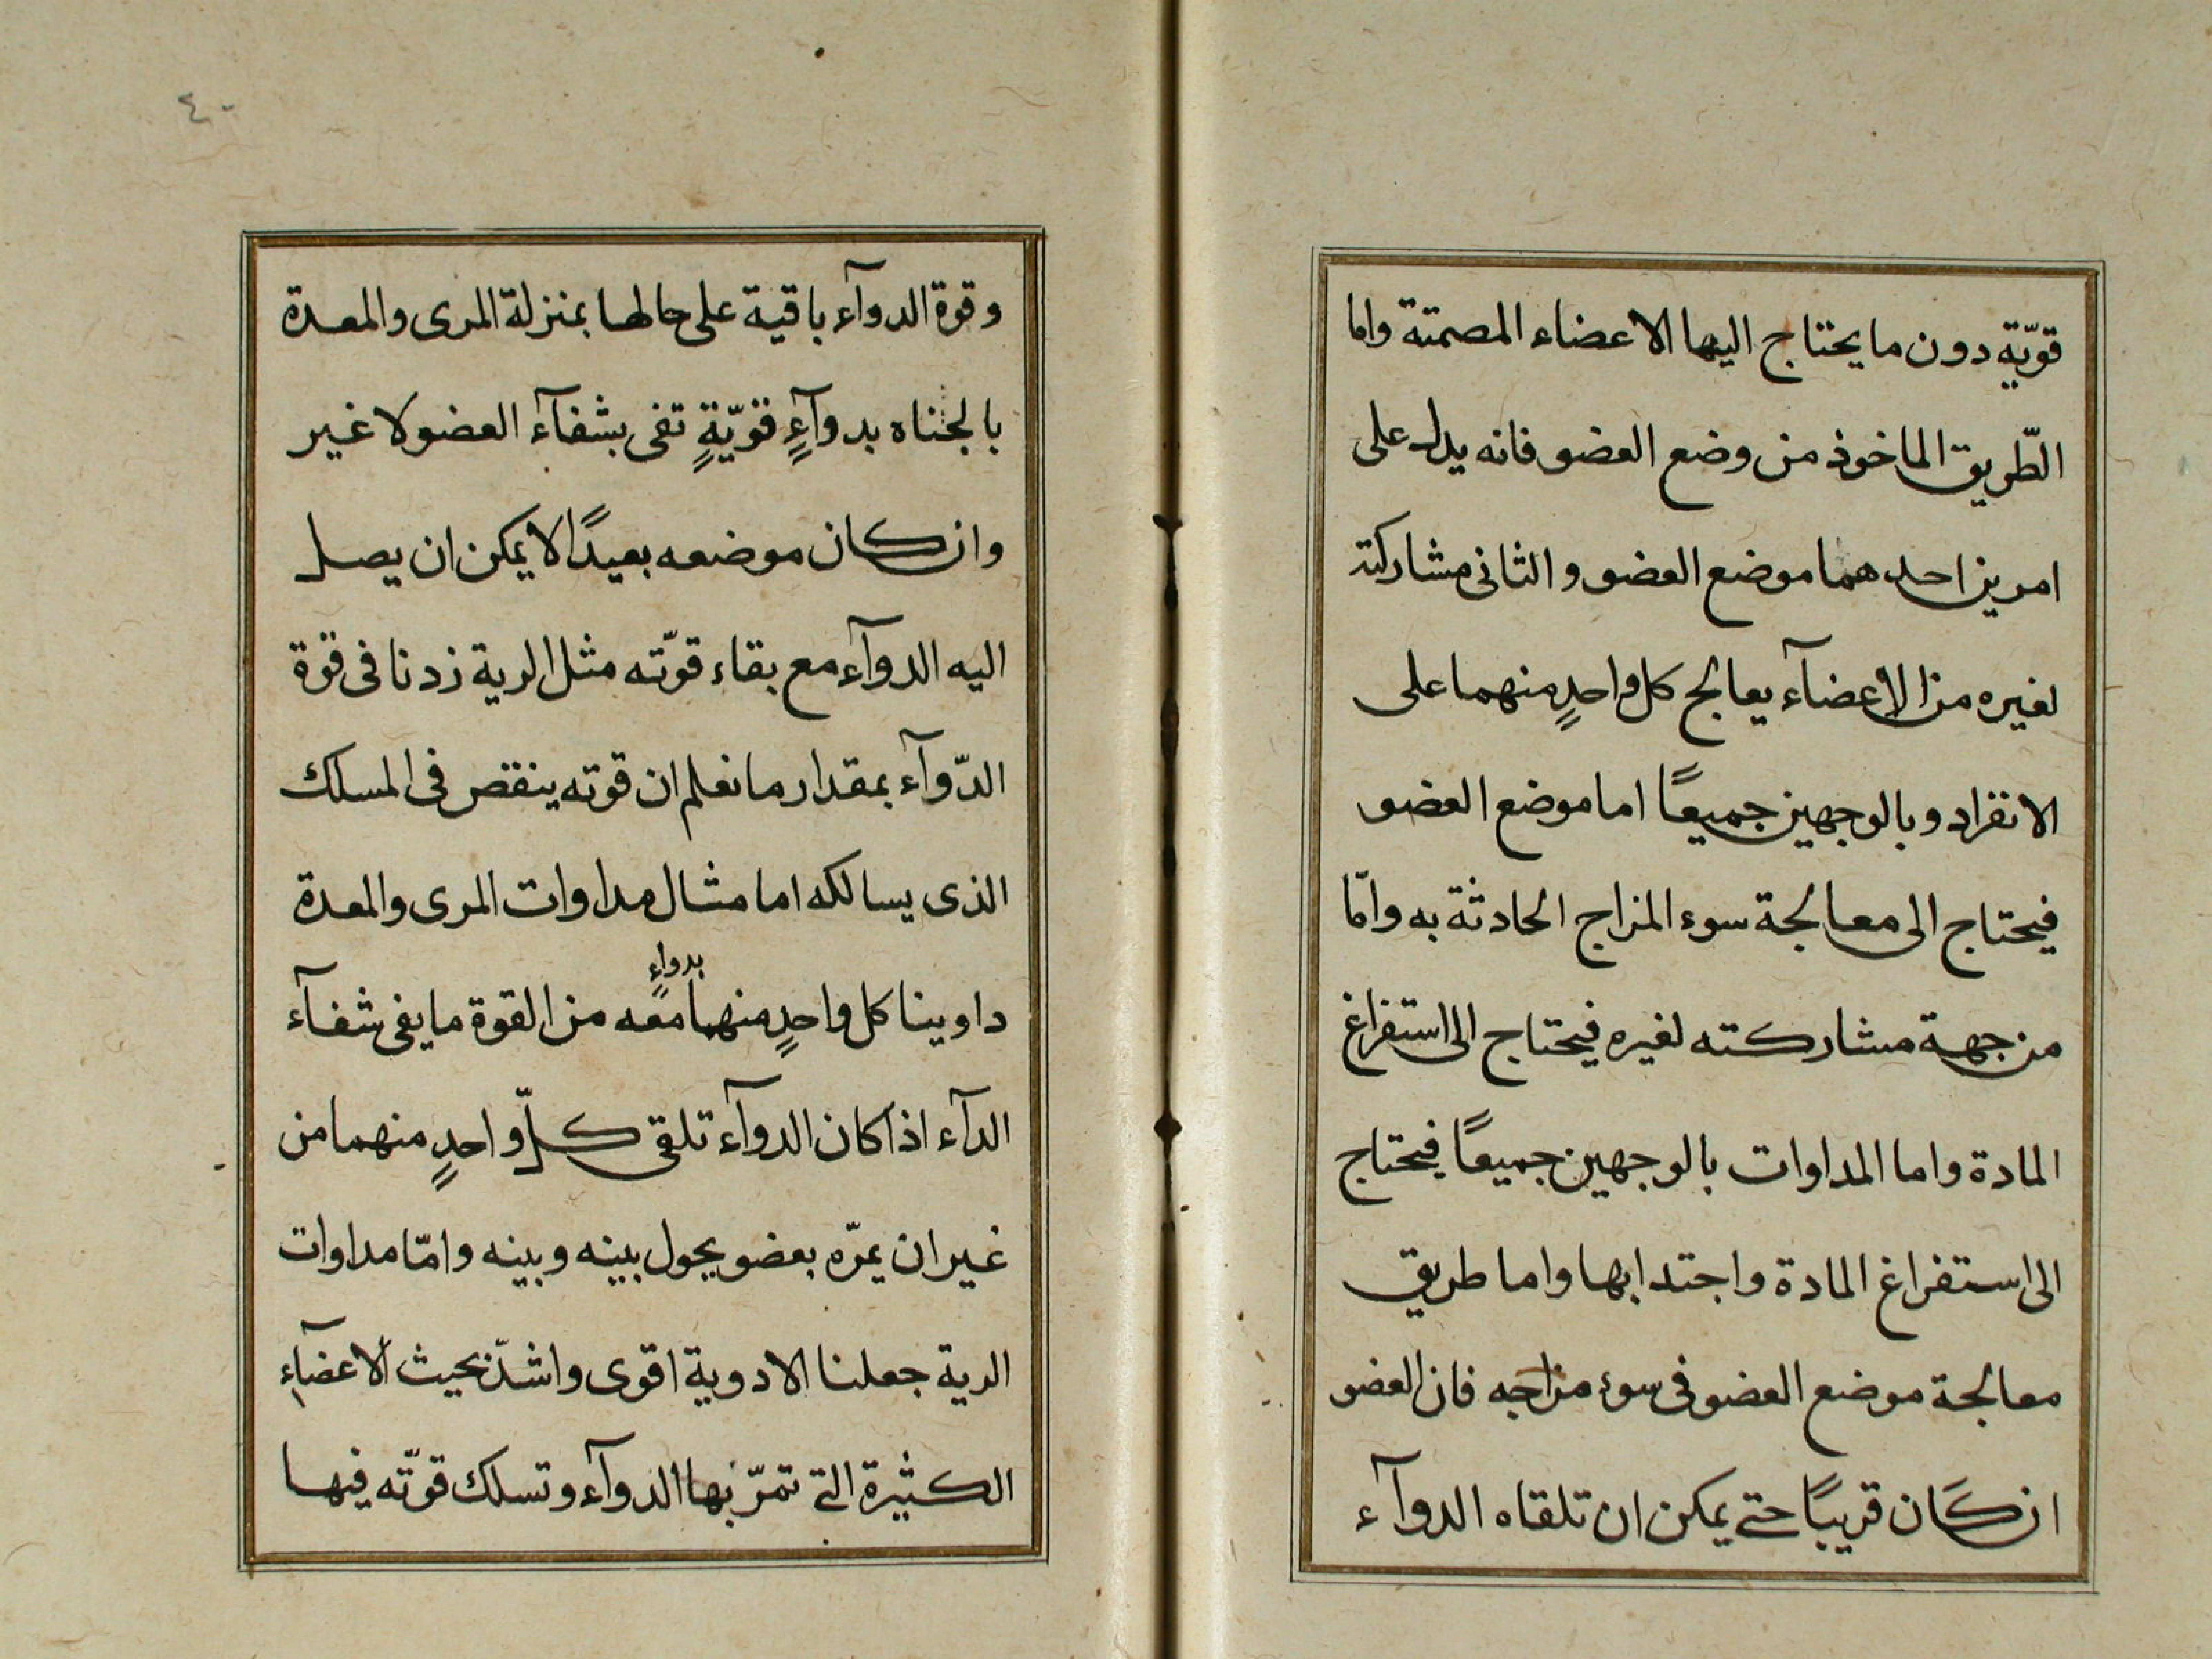 قويّة دون ما يحتاج اليها الاعضاء المصمتة واما
الطّريق الماخوذ من وضع العضو فانه يدل على
امرين احدهما موضع العضو والثانى مشاركته
لغيره من الاعضآء يعالج كل واحدٍ منهما على
الانفراد وبالوجهين جميعاً اما موضع العضو
فيحتاج الى معالجة سوء المزاج الحادثة به وامّا
من جهة مشاركته لغيره فيحتاج الى استفراغ
المادة واما المداوات بالوجهين جميعاً فيحتاج
الى استفراغ المادة واجتدابها واما طريق
معالجة موضع العضو فى سوء مزاجه فان العضو
ان كان قريبًا حتى يمكن ان تلقاه الدوآء
٤٠
وقوة الدوآء باقية على حالها بمنزلة المرى والمعدة
بالجناه بدوآءٍ قويّةٍ تفى بشفآء العضو لا غير
وان كان موضعه بعيدًا لا يمكن ان يصل
اليه الدوآء مع بقاء قوّته مثل الرية زدنا فى قوة
الدّوآء بمقدار ما نعلم ان قوته ينقص فى المسلك
الذى يسالكه اما مثال مداوات المرى والمعدة
داوينا كل واحدٍ منهما بدواءٍ معه من القوة ما يفى شفآء
الدآء اذا كان الدوآء تلقى كلّ واحدٍ منهما من
غير ان يمرّه بعضو يحول بينه وبينه وامّا مداوات
الرية جعلنا الادوية اقوى واشدّ بحيث الاعضآء
الكثيرة التى تمرّ بها الدوآء وتسلك قوّته فيها